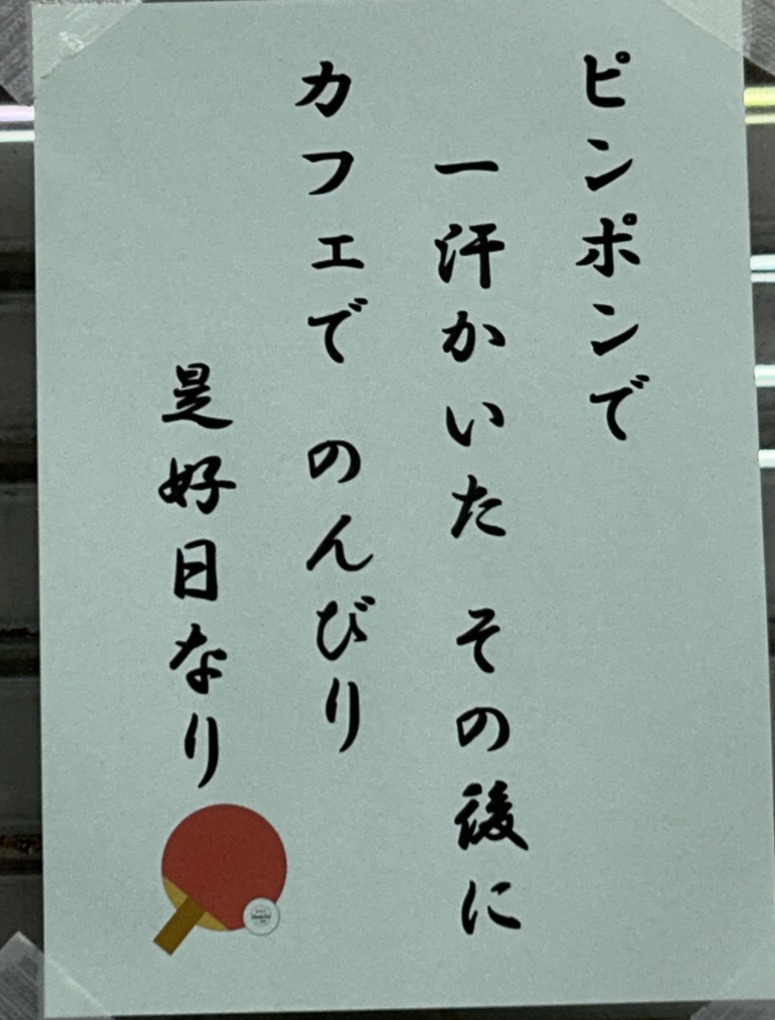 ピンポンで
一汗かいた その後に
カフェで のんびり
是好日なり